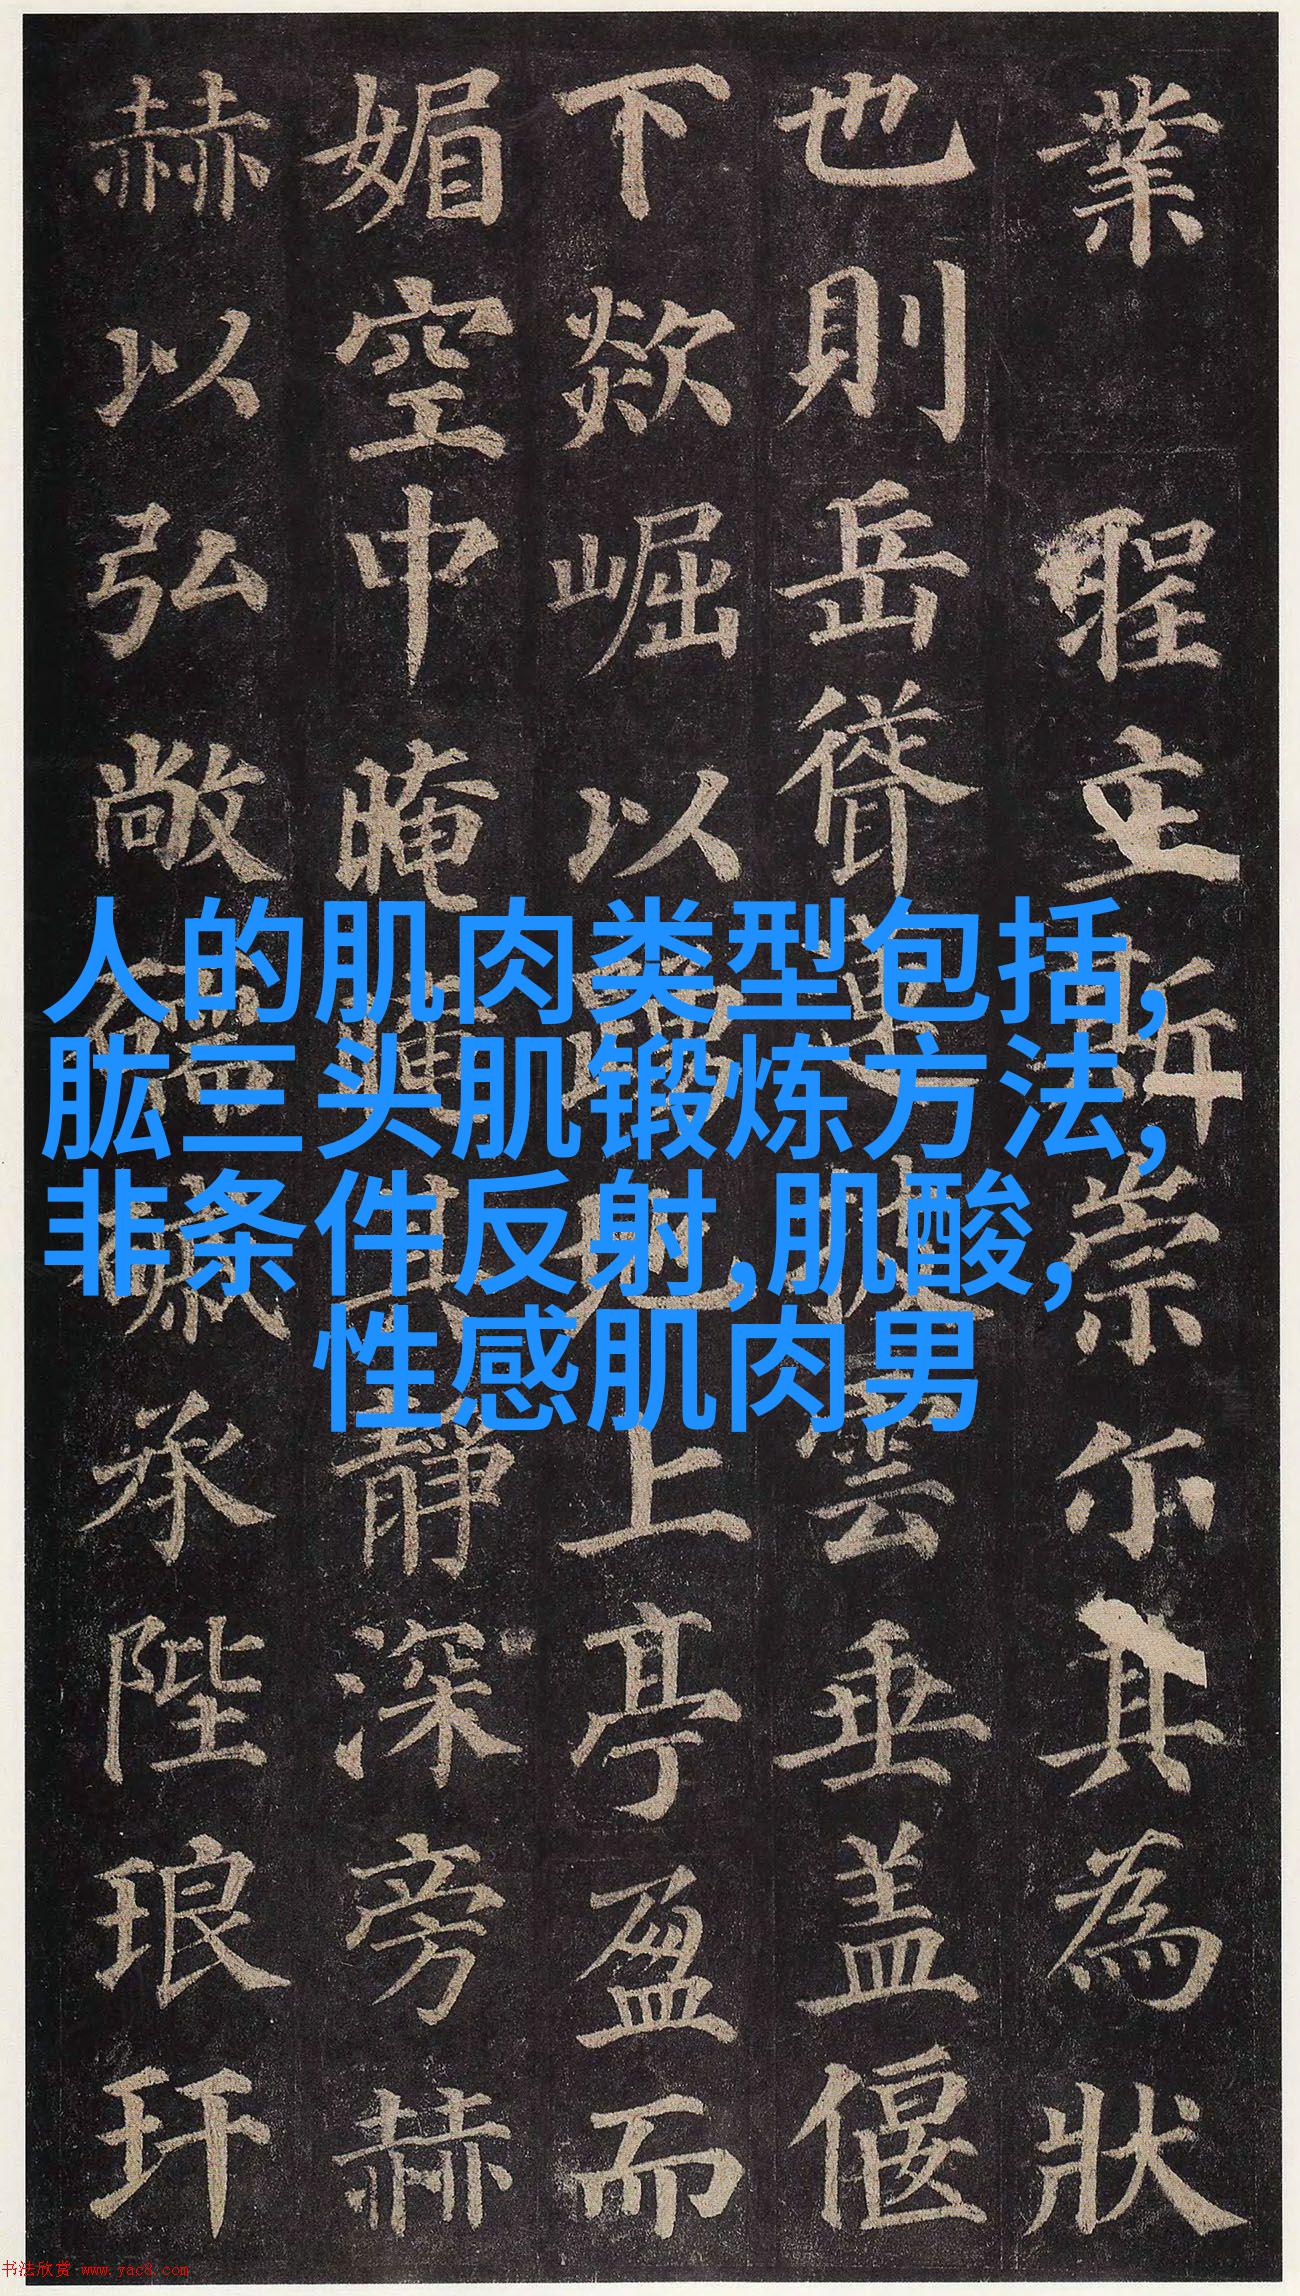 業 聖立斯崇尒其為狀
也則岳聳雲垂盖偃
下欻崛以地上亭盈而
媚空中晻曖其靜深旁赫
赫以弘敞承陛琅玕
人的肌肉类型包括,
肱三头肌锻炼方法,
非条件反射,肌酸,
性感肌肉男
书法欣赏 www.yac8.com